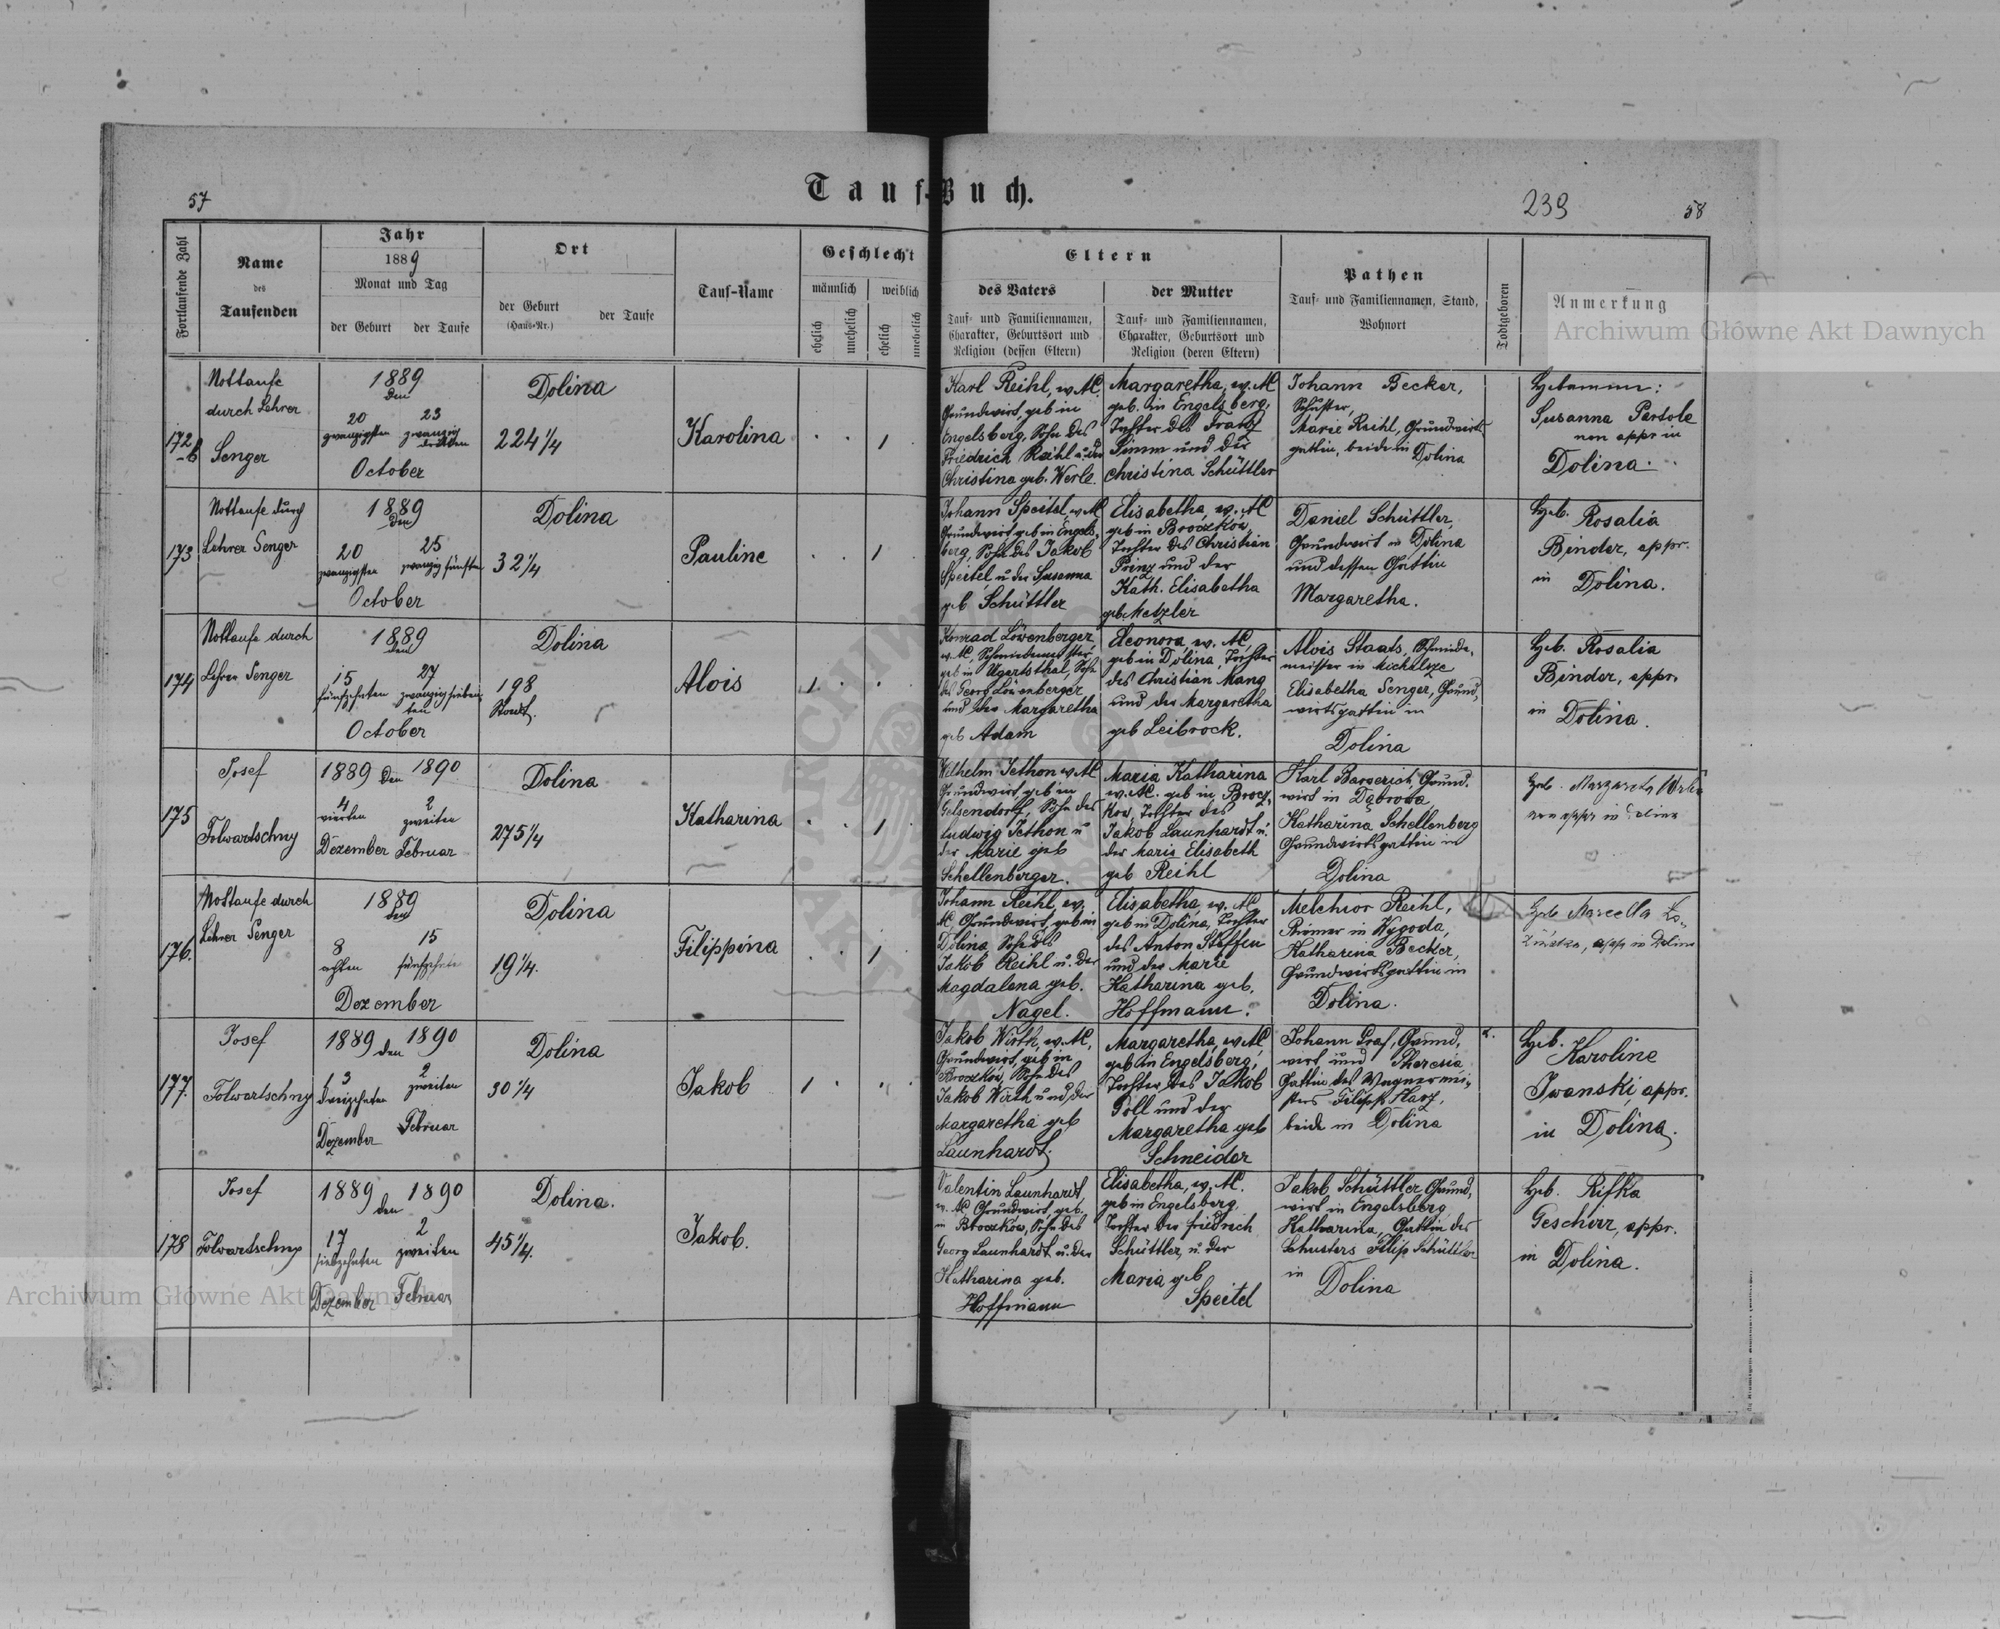 57
Tauf-Buch.
239
58
Fortlaufende Zahl
Name
des
Taufenden
Jahr
1889
Monat und Tag
der Geburt
der Taufe
Ort
der Geburt
(Haus-Nr.)
der Taufe
Tauf-Name
Geschlecht
männlich
weiblich
ehelich
unehelich
ehelich
unehelich
Eltern
des Vaters
Tauf- und Familiennamen,
Charakter, Geburtsort und
Religion (dessen Eltern)
der Mutter
Tauf- und Familiennamen,
Charakter, Geburtsort und
Religion (deren Eltern)
Pathen
Tauf- und Familiennamen, Stand,
Wohnort
Todtgeboren
Anmerkung
Archiwum Główne Akt Dawnych
172
b
Nottaufe
durch Lehrer
Senger
1889
den
20 23
zwanzigsten zwanzig
dritten
October
Dolina
224 1/4
Karolina
1
Karl Reihl, ev. AC.
Grundwirt, geb in
Engelsberg, Sohn des
Friedrich Reihl u. der
Christina geb. Werle.
Margaretha, ev. AC
geb. in Engelsberg,
Tochter des Franz
Simm und der
Christina Schüttler
Johann Becker,
Schuster,
Marie Reihl, Grundwirts
gattin, beide in Dolina
Hebamme:
Susanna Partole
non appr in
Dolina.
173
Nottaufe durch
Lehrer Senger
1889
den
20 25
zwanzigsten zwanzig fünften
October
Dolina
32 1/4
Pauline
1
Johann Speitel, ev. AC
Grundwirt geb in Engels-
berg, Sohn des Jakob
Speitel u der Susanna
geb Schüttler
Elisabetha, ev. AC
geb in Broczków,
Tochter des Christian
Prinz und der
Kath. Elisabetha
geb. Metzler
Daniel Schüttler,
Grundwirt in Dolina
und dessen Gattin
Margaretha.
Heb. Rosalia
Binder, appr.
in Dolina.
174
Nottaufe durch
Lehrer Senger
1889
den
15 27
fünfzehnten zwanzigsieben
ten
October
Dolina
198
Stadt.
Alois
1
Konrad Löwenberger,
ev. AC, Schmiedemeister,
geb in Ugartsthal, Sohn
des Georg Löwenberger
und der Margaretha
geb Adam
Eleonora, ev. AC
geb in Dolina, Tochter
des Christian Mang
und der Margaretha
geb Leibrock.
Alois Staats, Schmiede-
meister in
Elisabetha Senger, Grund-
wirtsgattin in
Dolina
Heb. Rosalia
Binder, appr.
in Dolina.
175
Josef
Folwartschny
1889 den 1890
4 2
vierten zweiten
Dezember Februar
Dolina
275 1/4
Katharina
1
Wilhelm Jethon ev. AC
Grundwirt geb in
Gelsendorf, Sohn des
Ludwig Jethon u
der Marie geb
Schellenberger.
Maria Katharina
ev. AC. geb in Brocz-
kow, Tochter des
Jakob Launhardt u.
der Marie Elisabeth
geb Reihl
Karl Bargerich, Grund-
wirt in Dąbrowa,
Katharina Schellenberg
Grundwirtsgattin in
Dolina
Heb. Margareta
non appr in Dolina
176.
Nottaufe durch
Lehrer Senger
1889
den
8 15
achten fünfzehnten
Dezember
Dolina
19 1/4.
Filippina
1
Johann Reihl, ev.
AC, Grundwirt, geb in
Dolina, Sohn des
Jakob Reihl u. der
Magdalena geb.
Nagel.
Elisabetha, ev. AC
geb in Dolina, Tochter
des Anton Steffen
und der Marie
Katharina geb.
Hoffmann.
Melchior Reihl,
Riemer in Wygoda,
Katharina Becker,
Grundwirtsgattin in
Dolina.
Heb Marcella
appr in Dolina
177.
Josef
Folwartschny
1889 den 1890
13 2
dreizehnten zweiten
Dezember Februar
Dolina
30 1/4
Jakob
1
Jakob Wirth, ev. AC,
Grundwirt, geb in
Broczków, Sohn des
Jakob Wirth und der
Margaretha geb
Launhardt.
Margaretha, ev. AC,
geb in Engelsberg,
Tochter des Jakob
Poll und der
Margaretha geb
Schneider
Johann Graf, Grund-
wirt und Theresia
Gattin des Wagnermei-
sters Filipp Harz,
beide in Dolina
Heb. Karoline
Iwanski, appr.
in Dolina.
178
Josef
Folwartschny
1889 den 1890
17 2
siebzehnten zweiten
Dezember Februar
Dolina.
45 1/4.
Jakob.
Valentin Launhardt,
ev. AC Grundwirt, geb.
in Broczków, Sohn des
Georg Launhardt u. der
Katharina geb.
Hoffmann
Elisabetha, ev. AC.
geb in Engelsberg,
Tochter des Friedrich
Schüttler, u. der
Maria geb
Speitel
Jakob Schüttler, Grund-
wirt in Engelsberg,
Katharina, Gattin des
Schusters Filip Schüttler
in
Dolina
Heb. Rifka
Geschwir, appr.
in Dolina.
Archiwum Główne Akt Dawnych